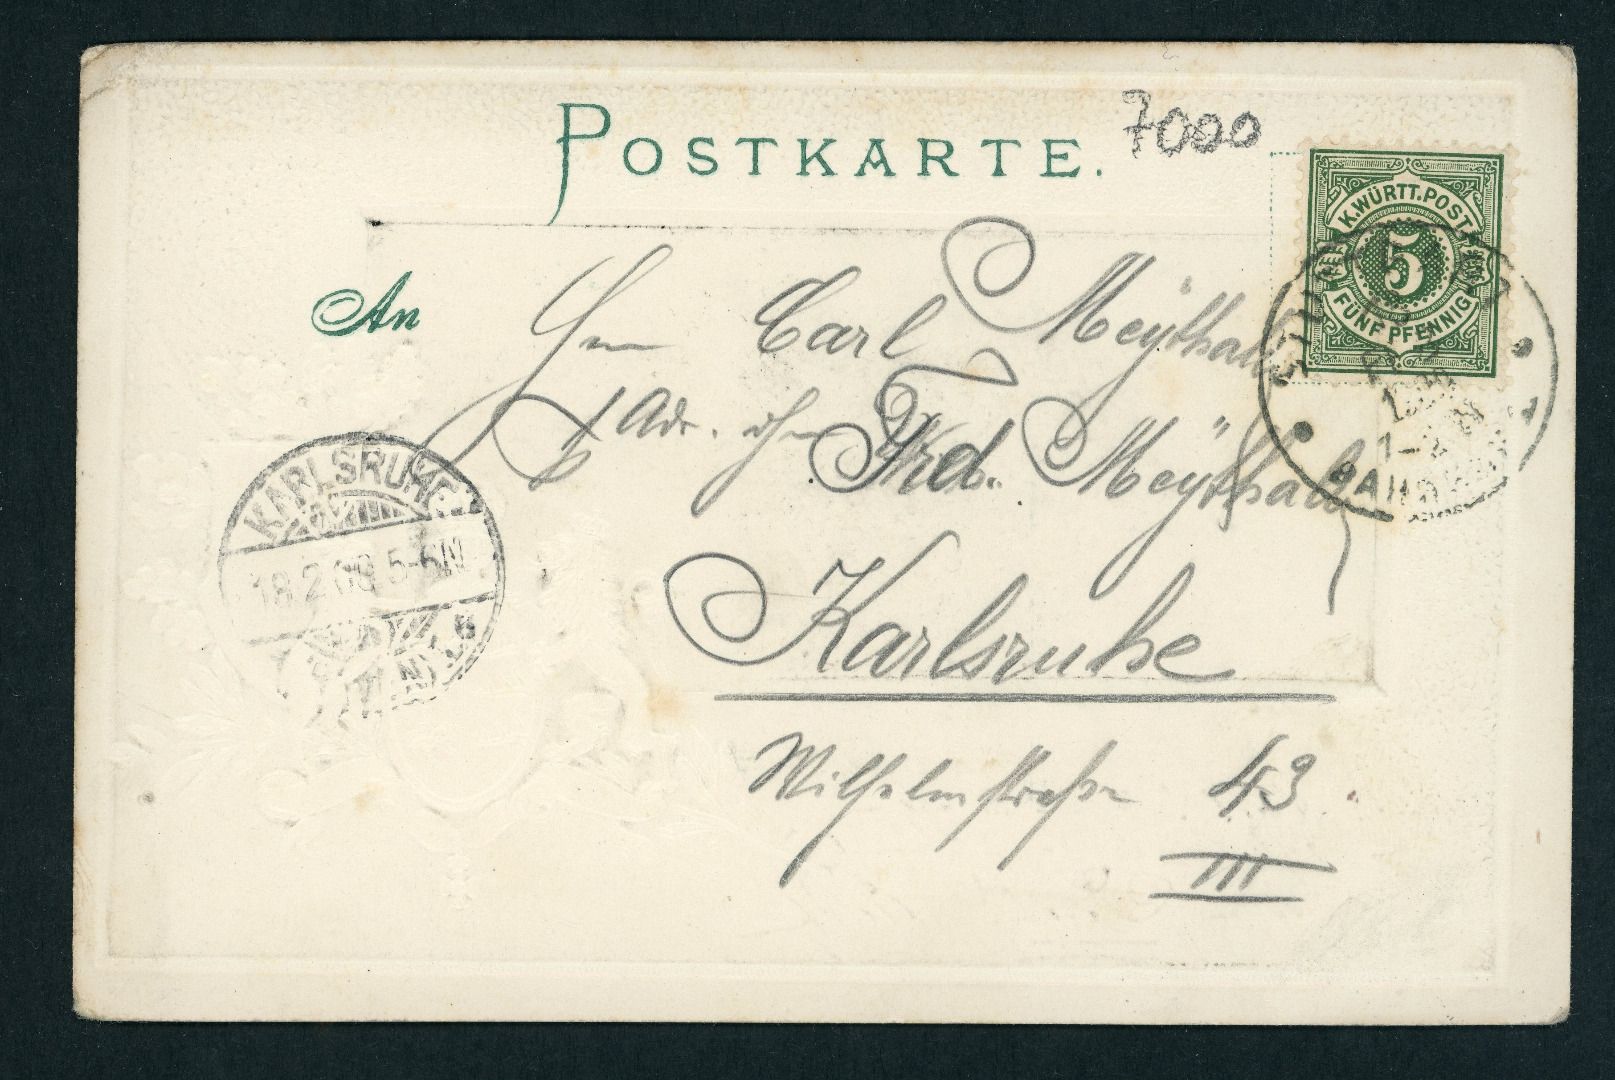 POSTKARTE.
7000
K. WÜRTT. POST
5
FÜNF PFENNIG
An
Herrn Carl Meÿthaler
Adr. Hrn Frd. Meÿthaler
Karlsruhe
Wilhelmstraße 43
III
KARLSRUHE
18.2.00.5-6N
STUTTGART
1-2N
BAHNHOF